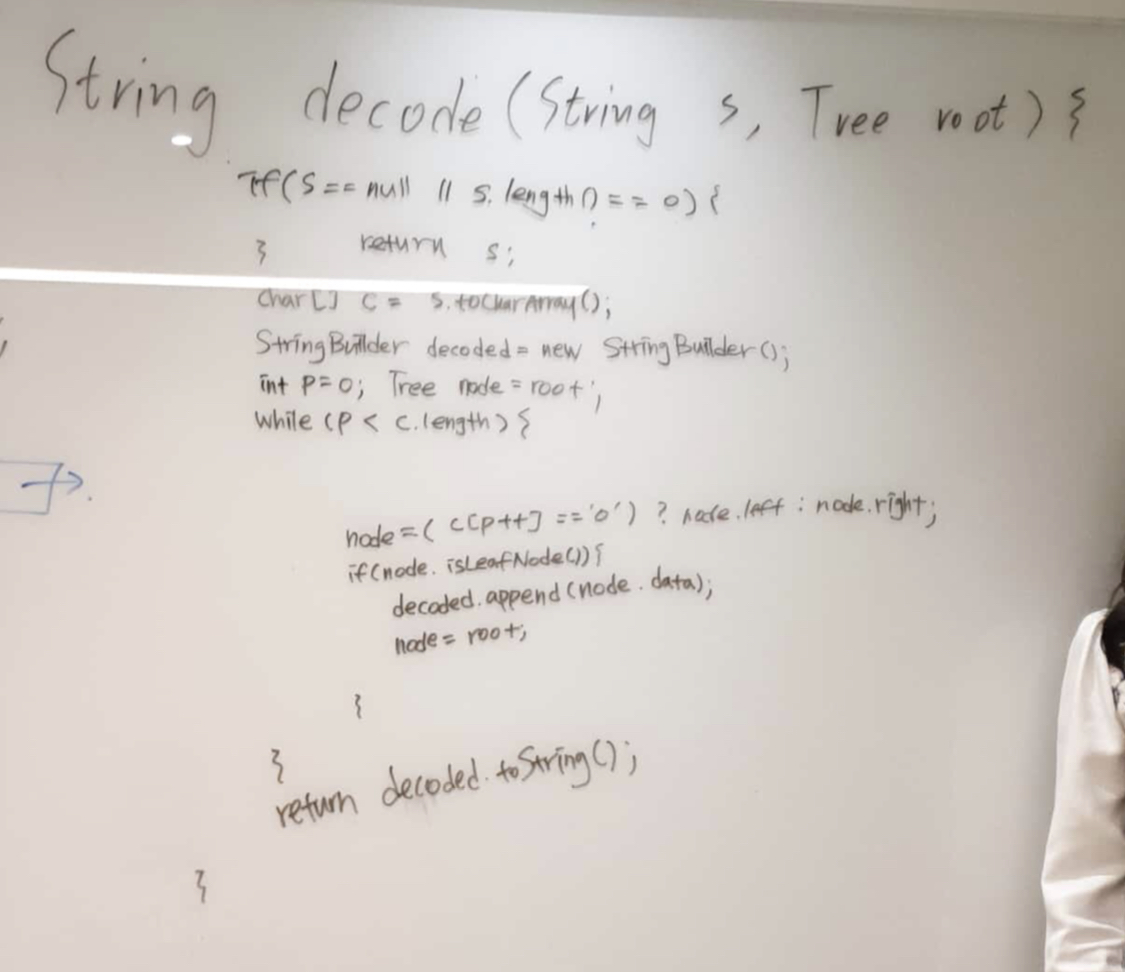 String decode(String s, Tree root) {
If(s == null || s.length() == 0) {
} return s;
char[] c = s.toCharArray();
StringBuilder decoded = new StringBuilder();
int p=0; Tree node = root;
while (p < c.length) {
node = ( c[p++] == '0' ) ? node.left : node.right;
if(node. isLeafNode()){
decoded.append(node.data);
node = root;
}
}
return decoded.toString();
}